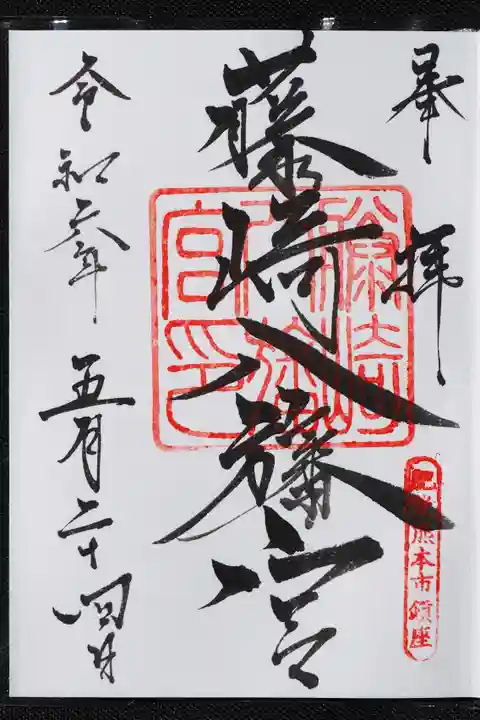 奉拝
熊本市鎮座
藤崎八旛宮
藤崎
八旛
宮印
令和六年五月二十四日